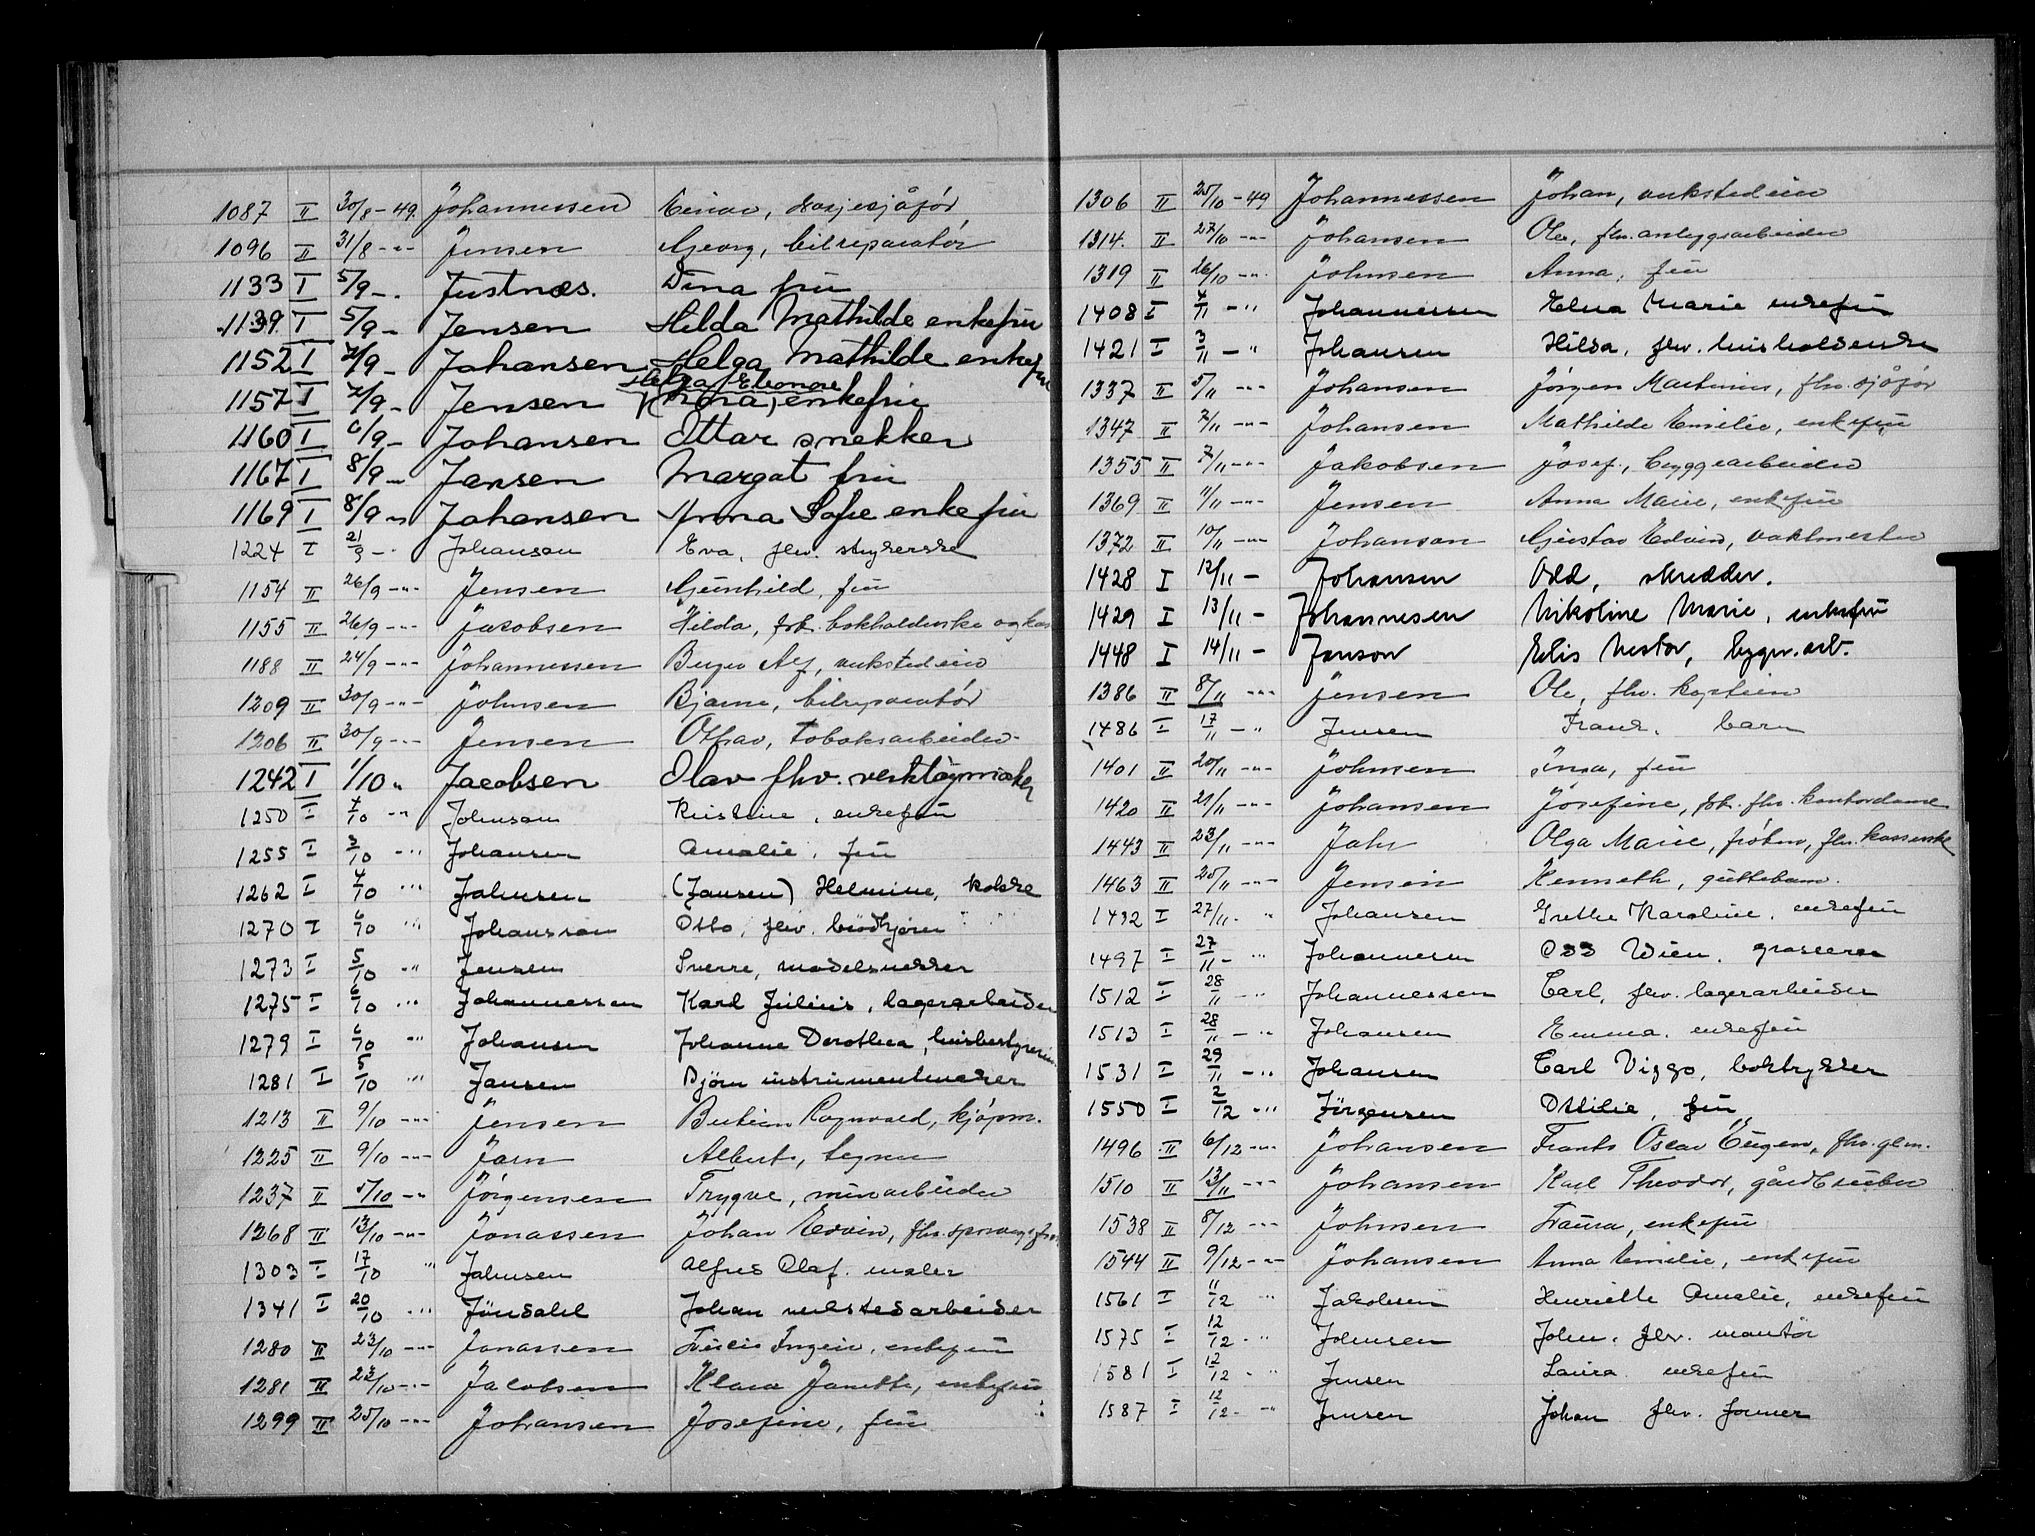 1087 II 30/8-49. Johannessen Einar, drosjesjåfør
1096 II 31/8-"- Jensen Georg, bilreparatør
1133 I 5/9-. Justnæs. Dina fru
1139. I 5/9- Jensen Hilda Mathilde enkefru
1152 I 7/9- Johansen Helga Mathilde enkefru
Helga Eleonore
1157 I 7/9- Jensen (Nora) enkefru
1160 I 6/9- Johansen Ottar snekker
1167 I 8/9- Jansen Margot fru
1169 I 8/9-" Johansen Anna Sofie enkefru
1224 I 21/9-" Johanson Eva, fhv. strykerske
1154 II 26/9-"- Jensen Gunhild, fru
1155 II 26/9-"- Jacobsen Hilda, frk. bokholderske og kas
1188 II 24/9-"- Johannessen Birger Alf, verkstedeier
1209 II 30/9-"- Johnsen Bjarne, bilreparatør
1206 II 30/9-"- Jensen Othar, tobaksarbeider
1242 I 1/10 " Jacobsen Olav fhv. verktøymaker
1250 I 1/10 -" Johnson Kristine, enkefru
1255 I 3/10 -" Johansen Amalie, fru
1262 I 4/10 -" Johnsen (Jansen) Helmine, kokke
1270 I 6/10 -" Johansson Otto, fhv. brødkjører
1273 I 5/10 -" Jensen Sverre, modelsnekker
1275 I 6/10 -" Johannessen Karl Julius, lagerarbeider
1279 I 6/10 -" Johansen Johanne Dorothea, husbestyrerin
1281 I 5/10 -" Jansen Bjørn instrumentmaker
1213 II 9/10-"- Jensen Ragnvald, kjøpm.
1225 II 9/10-"- Jørn Albert, tegner
1237 II 5/10-"- Jørgensen Trygve, murarbeider
1268 II 13/10-"- Jonassen Johan Edvin, fhv.
1303 I 17/10 " Johnsen Alfred Olaf. maler
1341 I 20/10 -" Jøndahl Johan verkstedarbeider
1280 II 23/10-"- Jonassen enkefru
1281 II 23/10-"- Jacobsen Klara Janette, enkefru
1299 II 25/10-"- Johansen Josefine, fru
1306 II 25/10-49 Johannessen Johan, verkstedeier
1314. II 27/10-"- Johansen Ole, fhv. anleggsarbeider
1319 II 26/10-"- Johnsen Anna, fru
1408 I 4/11 -" Johannessen Elna Marie enkefru
1421 I 3/11 -" Johansen Hilda, fhv. husholderske
1337 II 5/11-"- Johansen Jørgen Martinius, fhv. sjåfør
1347 II 7/11-"- Johansen Mathilde Emilie, enkefru
1355 II 7/11-"- Jakobsen Josef, bryggearbeider
1369 II 11/11-"- Jensen Anna Marie, enkefru
1372 II 10/11-"- Johansen Gustav Edvin, vaktmester
1428 I 12/11- Johansen Odd, skredder.
1429 I 13/11- Johannesen Nikoline Marie, enkefru
1448 I 14/11- Janson Elis Nestor, bygn.arb.
1386 II 8/11-"- Jensen Ole, fhv. kaptein
1486 I 17/11 -" Jensen Frank, barn
1401 II 20/11-"- Johnsen Inga, fru
1420 II 21/11-"- Johansen Josefine, frk. fhv. kontordame
1443 II 23/11-"- Jahr Olga Marie, frøken, fhv. kasserske
1463 II 25/11-"- Jensen Kenneth, guttebarn.
1432 I 27/11. " Johansen Grethe Karoline. enkefru
1497 I 27/11- " Johannesen Odd Wien. grosserer
1512 I 28/11 -" Johannessen Carl, fhv. lagerarbeider
1513 I 28/11 -" Johansen Emma. enkefru
1531 I 29/11 -" Johansen Carl Viggo, boktrykker
1550 I 2/12 -" Jörgensen Ottilie, fru
1496 II 6/12-"- Johansen Frants Oscar Eugen, fhv. glm.
1510 II 13/11-"- Johansen Karl Theodor, gårdbruker
1538 II 8/12-"- Johnsen Laura, enkefru
1544 II 9/12-"- Johansen Anna Emilie, enkefru
1561 I 11/12 " Jakobsen Henriette Amalie, enkefru
1575 I 12/12 -" Johnsen John. fhv. montör
1581 I 12/12 -" Jensen Laura enkefru
1587 I 12/12- -" Jensen Johan fhv. former